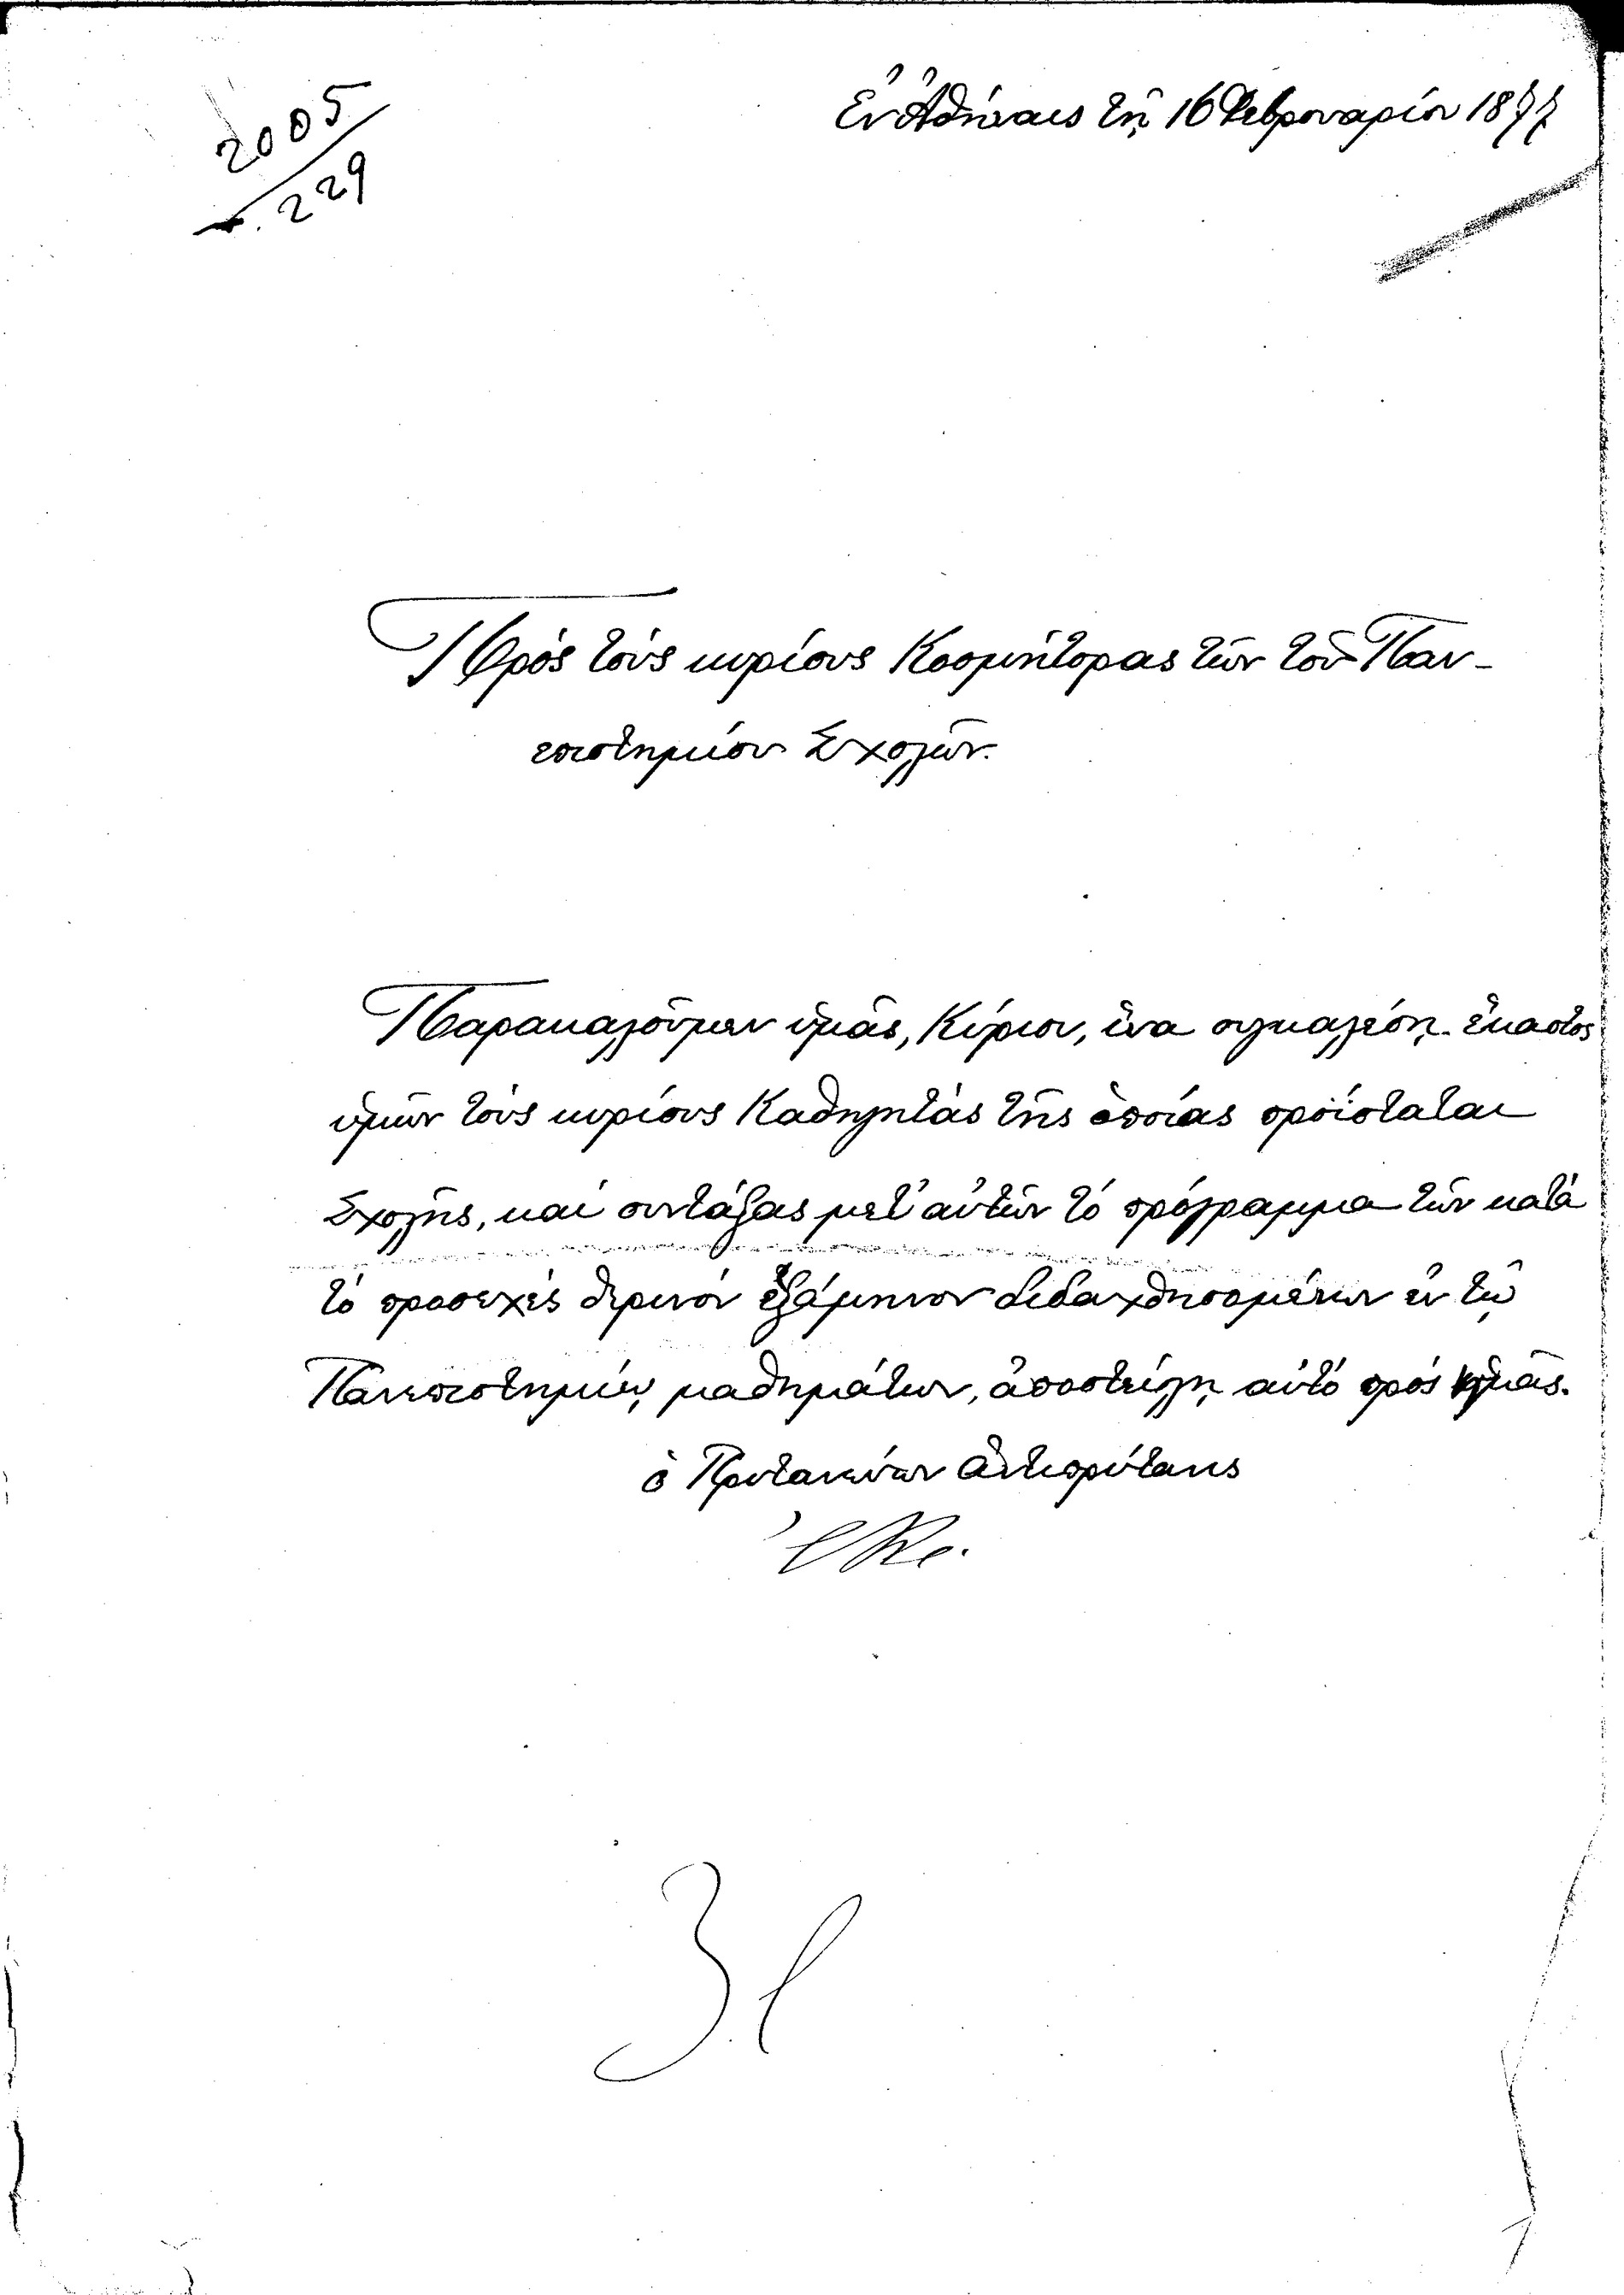 2005
229
Ἐν Ἀθήναις τῇ 16 Φεβρουαρίου 1877
Πρὸς τοὺς κυρίους Κοσμήτορας τῶν τοῦ Παν-
επιστημίου Σχολῶν.
Παρακαλοῦμεν ὑμᾶς, Κύριοι, ἵνα συγκαλέσῃ ἕκαστος
ὑμῶν τοὺς κυρίους Καθηγητὰς τῆς ὁποίας προΐσταται
Σχολῆς, καὶ συντάξας μετ' αὐτῶν τὸ πρόγραμμα τῶν κατὰ
τὸ προσεχὲς θερινὸν ἑξάμηνον διδαχθησομένων ἐν τῷ
Πανεπιστημίῳ μαθημάτων, ἀποστείλῃ αὐτὸ πρὸς ἡμᾶς.
ὁ Πρυτανεύων Ἀντιπρύτανις